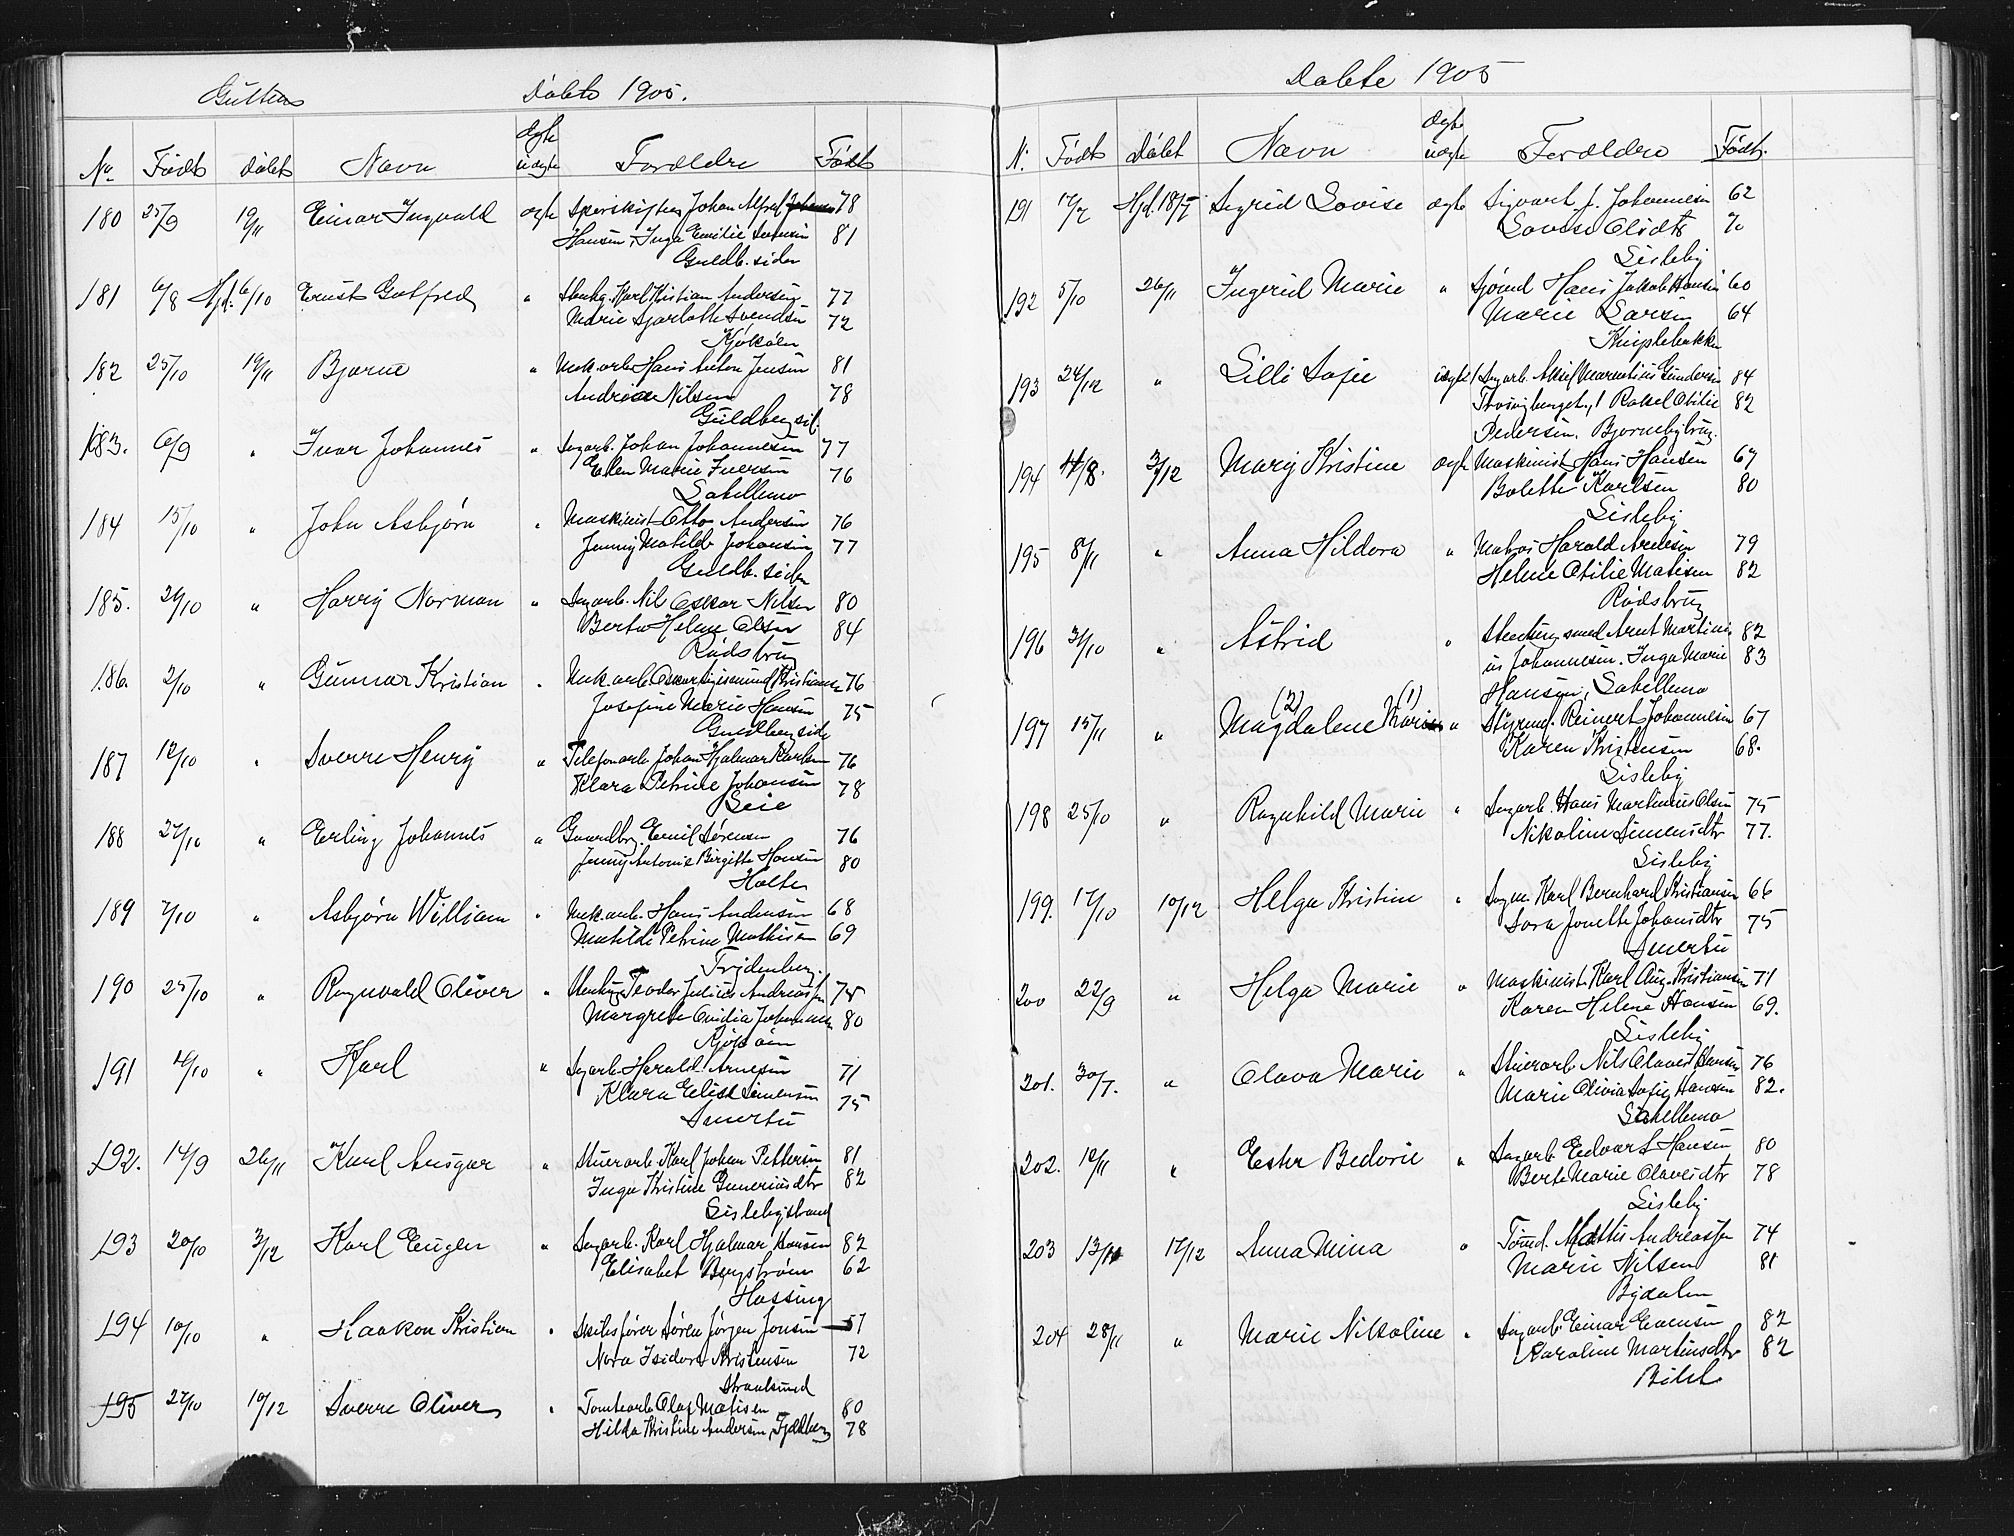 Gutter Døbte 1905.
No Født Døbt Navn ægte uægte Forældre Født
180 25/9 19/11 Einar Ingvald ægte Johan Alfred 78
Hansen, Inga Emilie 81
Guldb. siden
181 6/8 Hjd. 6/10 Ernst Gotfred " Stenhg. Karl Kristian Andersen 77
Marie Svendsen 72
Kjøkøen
182 25/10 19/11 Bjarne " Mek arb. Hans Anton Jensen 81
Nilsen 78
Guldbergsid.
183. 6/9 " Ivar Johannes " Sagarb. Johan Johannesen 77
Ellen Marie Iversen 76
Labellemo
184 15/10 " John Asbjørn " Maskinist Otto Andersen 76
Jenny Matilde Johansen 77
Guldb. siden
185. 24/10 " Harry Norman " Sagarb. Nil Oskar Nilsen 80
Berta Helene Olsen 84
Rødsbrug
186. 2/10 " Gunnar Kristian " Mek arb Oskar Sigismund Kristiansen 76
Josefine Marie Hansen 75
Guldbergside
187 12/10 " Sverre Henry " Telefonarb Johan Hjalmar Karlsen 76
Klara Petrine Johansen 78
Leie
188 27/10 " Erling Johannes " Gaardbr. Emil Sørensen 76
Jenny Antonie Birgitte Hansen 80
Holte
189 7/10 " Asbjørn William " Mekarb. Hans Andersen 68
Matilde Petrine Mathisen 69
Trydenberg.
190 25/10 " Ragnvald Oliver " Stenhug Teodor Julius Andreassen 75
Margrete Johannessen 80
Kjøkøen
191 10 " Karl " Sagarb Harald Arnesen 71
Klara Elise Simensen 75
Smertu
192. 14/9 26/11 Karl Ansgar " Stuerarb. Karl Johan Pettersen 81
Inga Kristine Guneriusdtr 82
Lislebystrand
193 20/10 3/12 Karl Eugen " Sagarb. Karl Hjalmar Hansen 82
Elisabet Bergstrøm 62
Hassing
194 10/10 " Haakon Kristian " Skibsfører Søren Jørgen Jonsen 57
Nora Isidora Kristensen 72
Straalsund
195 27/10 10/12 Sverre Oliver " Tomtearb Olaf Matisen 80
Hilda Kristine Andersen, Fjeldberg 78
Døbte 1905
N. Født Døbt Navn ægte uægte Forældre Født.
191 17/7 Hjd. 18/7 Sigrid Lovise ægte Sigvart J. Johannesen 62
Lovise Olsdtr 70
Lisleby
192 5/10 26/11 Ingerid Marie " Sjømd Hans Jakob Hansen 60
Marie Larsen 64
Kniplebakken
193 24/12 " Lilli Sofie uægte Sagarb. Gundersen 84
Rakel Otilie 82
Pedersen. Bjørnebybrug.
194 4/8. 3/12 Mary Kristine ægte Maskinist Hans Hansen 67
Bolette Karlsen 80
Lisleby
195 8/11 " Anna Hildora " Matros Harald Arnesen 79
Helene Otilie Matisen 82
Rødsbrug
196 31/10 " Astrid " Stenhugsmed Arnt Martini 82
us Johannesen. Inga Marie 83
Hansen, Labellemo
(2) (1)
197 15/11 " Magdalene Karin " Styrmd. Reinert Johannesen 67
Karen Kristensen 68.
Lisleby
198 25/10 " Ragnhild Marie " Sagarb. Hans Martinius Olsen 75
Nikoline Simensdtr 77.
Lisleby
199. 17/10 10/12 Helga Kristine " Sagm. Karl Bernhard Kristiansen 66
Sara Jonette Johansdtr 75
Smertu
200 22/9 " Helga Marie " Maskinist Karl Aug. Kristiansen 71
Karen Helene Hansen 69.
Lisleby
201. 30/7. " Olava Marie " Stuerarb Nils Olaves Hansen 76
Marie Olivia Sofie Hansen 82.
Labellemo
202. 12/11 " Ester Bedorie " Sagarb Edvart Hansen 80
Berte Marie Olavesdtr 78
Lisleby
203 13/11 17/12 Anna Mina " Tømd. Mattis Andreassen 74
Marie Nilsen 81
Bydalen
204 28/11 " Marie Nikoline " Sagarb. Einar Evensen 82
Karoline Martinsdtr 82